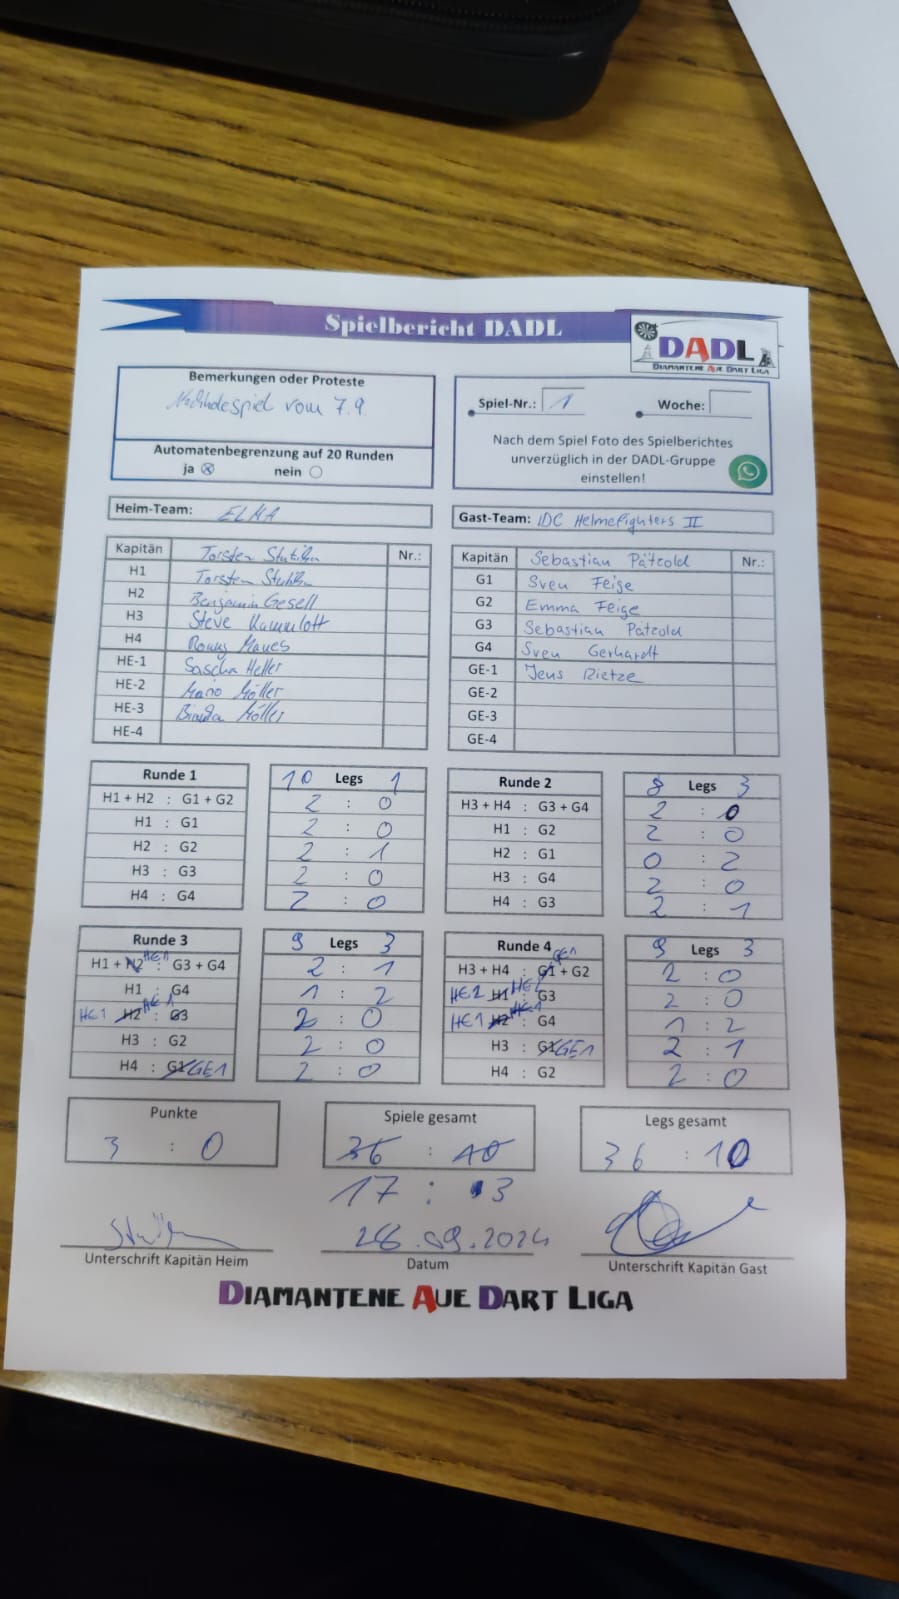 Spielbericht DADL
DADL
DIAMANTENE AUE DART LIGA
Bemerkungen oder Proteste
Nachholespiel vom 7.9.
Automatenbegrenzung auf 20 Runden
ja nein
Spiel-Nr.: 1 Woche:
Nach dem Spiel Foto des Spielberichtes
unverzüglich in der DADL-Gruppe
einstellen!
Heim-Team: ELMA
Gast-Team: IDC Helmefighters II
Kapitän Torsten Nr.:
H1 Torsten
H2 Benjamin Gesell
H3 Steve Kammlott
H4 Ronny
HE-1 Sascha Heller
HE-2 Mario Möller
HE-3 Möller
HE-4
Kapitän Sebastian Pätzold Nr.:
G1 Sven Feige
G2 Emma Feige
G3 Sebastian Pätzold
G4 Sven Gerhardt
GE-1 Jens Dietze
GE-2
GE-3
GE-4
Runde 1 10 Legs 1
H1 + H2 : G1 + G2 2 : 0
H1 : G1 2 : 0
H2 : G2 2 : 1
H3 : G3 2 : 0
H4 : G4 2 : 0
Runde 2 8 Legs 3
H3 + H4 : G3 + G4 2 : 0
H1 : G2 2 : 0
H2 : G1 0 : 2
H3 : G4 2 : 0
H4 : G3 2 : 1
Runde 3 9 Legs 3
H1 + H2 HE1 : G3 + G4 2 : 1
H1 : G4 1 : 2
HE1 H2 HE1 : G3 2 : 0
H3 : G2 2 : 0
H4 : G1 GE1 2 : 0
Runde 4 9 Legs 3
H3 + H4 : G1 GE1 + G2 2 : 0
HE2 H1 HE2 : G3 2 : 0
HE1 H2 HE1 : G4 1 : 2
H3 : G1 GE1 2 : 1
H4 : G2 2 : 0
Punkte
3 : 0
Spiele gesamt
36 : 10
17 : 3
Legs gesamt
36 : 10
Unterschrift Kapitän Heim
28.09.2024
Datum
Unterschrift Kapitän Gast
DIAMANTENE AUE DART LIGA